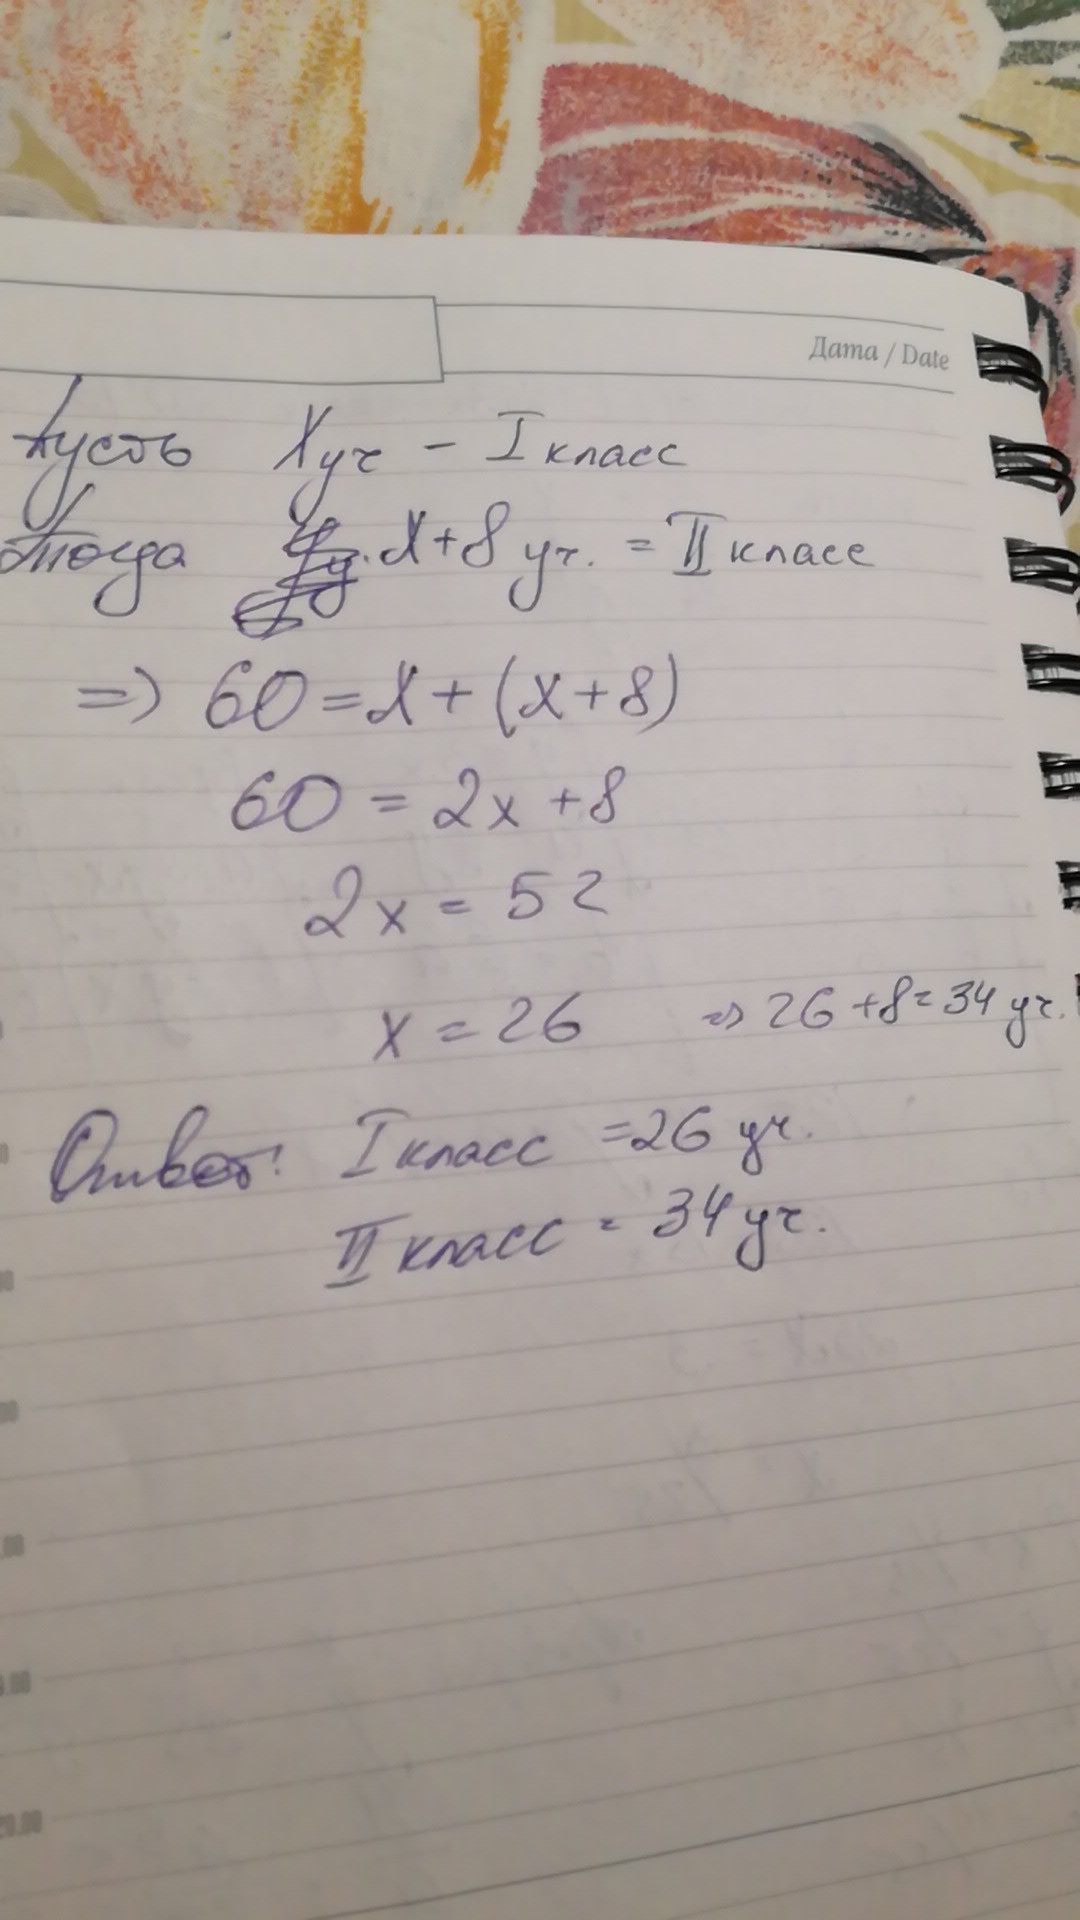 Дата / Date
Пусть Xуч - I класс
Тогда X+8 уч. = II класс
=> 60 = X + (x+8)
60 = 2x + 8
2x = 52
x = 26 => 26 + 8 = 34 уч.
Ответ: I класс = 26 уч.
II класс = 34 уч.